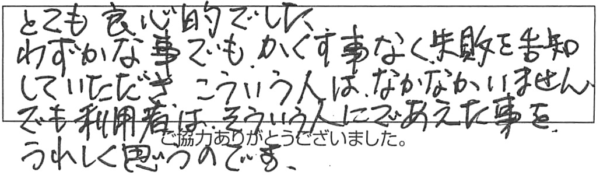 とても良心的でした、
わずかな事でも、かくす事なく、失敗を告知
していただき こういう人は、なかなかいません、
でも利用者は、そういう人にであえた事を、
ご協力ありがとうございました。
うれしく思うのです、